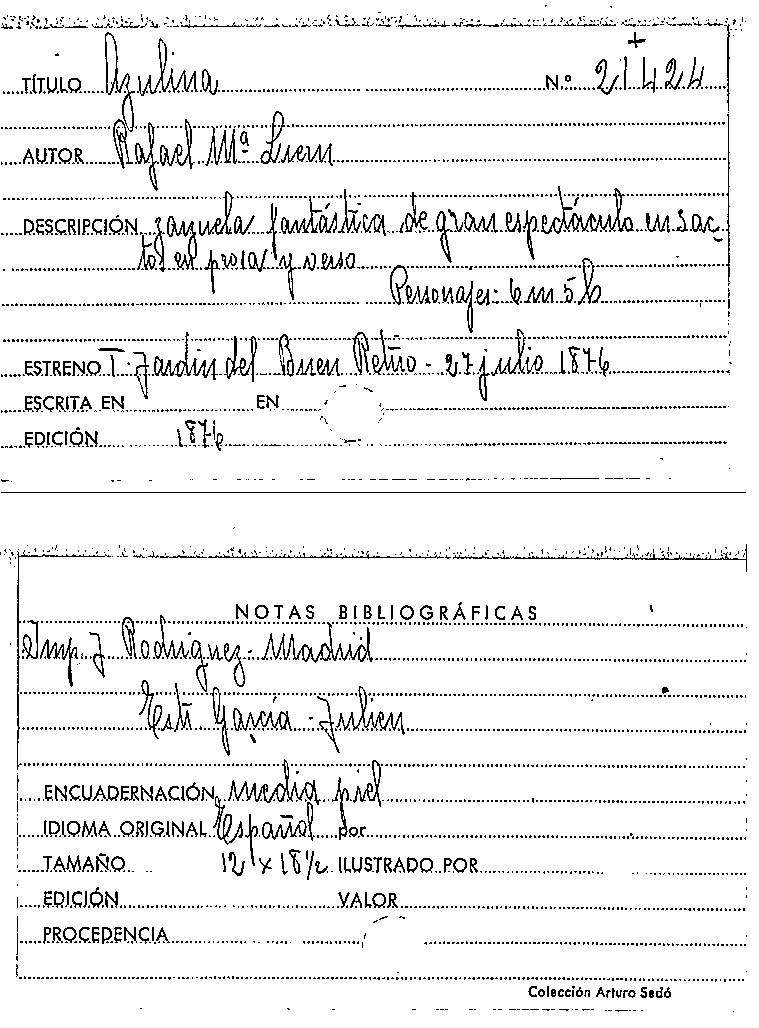 +
TÍTULO Azulina Nº 21424
AUTOR Rafael Mª Liern
DESCRIPCIÓN zarzuela fantástica de gran espectáculo en 3 ac
tos en prosa y verso
Personajes: 6 m 5 h
ESTRENO T. Jardín del Buen Retiro - 27 julio 1876
ESCRITA EN EN
EDICIÓN 1876
NOTAS BIBLIOGRÁFICAS
Imp. J Rodriguez - Madrid
García - Julien
ENCUADERNACIÓN media piel
IDIOMA ORIGINAL Español por
TAMAÑO 12 x 18½ ILUSTRADO POR
EDICIÓN VALOR
PROCEDENCIA
Colección Arturo Sedó